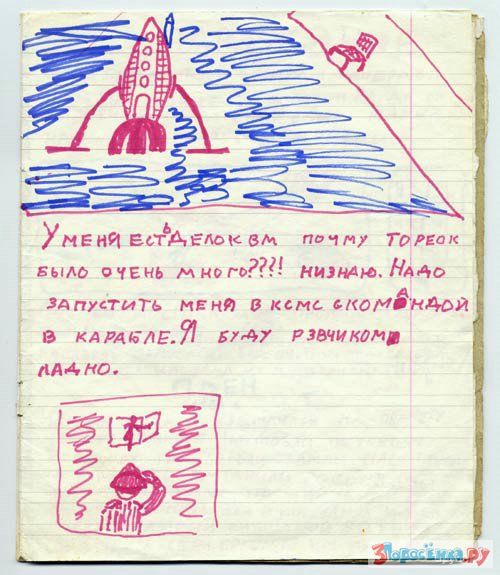 У МЕНЯ ЕСТЬ ДЕЛО К ВМ ПОЧМУ ТОРЕОК
БЫЛО ОЧЕНЬ МНОГО???! НИЗНАЮ. НАДО
ЗАПУСТИТЬ МЕНЯ В КСМС СКОМАНДОЙ
В КАРАБЛЕ. Я БУДУ РЗВЧИКОМ
ЛАДНО.
3Поросёнка.ру